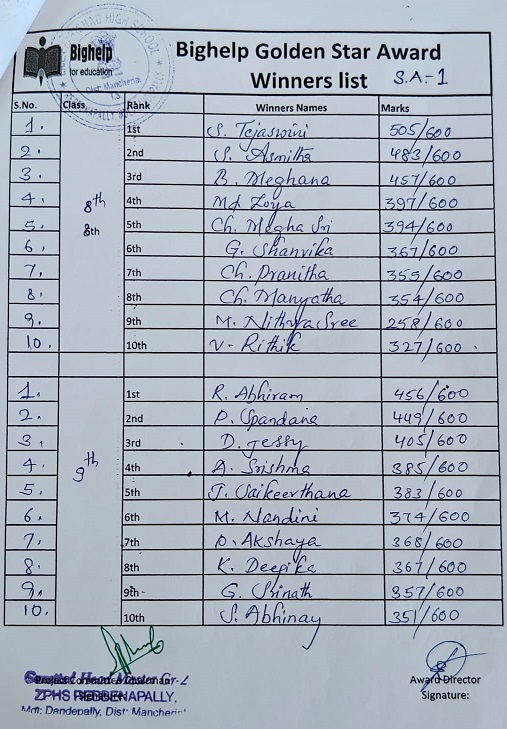 Bighelp
for education
Bighelp Golden Star Award
Winners list S.A-1
S.No. Class Rank Winners Names Marks
1. 1st S. Tejaswini 505/600
2. 2nd S. Asmitha 483/600
3. 3rd B. Meghana 457/600
4. 8th 4th Md Zoya 397/600
5. 8th 5th Ch. Megha Sri 394/600
6. 6th G. Shanvika 367/600
7. 7th Ch. Pranitha 355/600
8. 8th Ch. Manyatha 354/600
9. 9th M. Nithya Sree 258/600
10. 10th V. Rithik 327/600
1. 1st R. Abhiram 456/600
2. 2nd P. Spandana 449/600
3. 3rd D. Jessy 405/600
4. 9th 4th A. Srishma 385/600
5. 5th J. Saikeerthana 383/600
6. 6th M. Nandini 374/600
7. 7th D. Akshaya 368/600
8. 8th K. Deepika 367/600
9. 9th G. Srinath 357/600
10. 10th S. Abhinay 351/600
Head Master Gr-2
ZPHS REDDENAPALLY,
Mdl: Dandepally, Dist: Mancherial
Award Director
Signature: